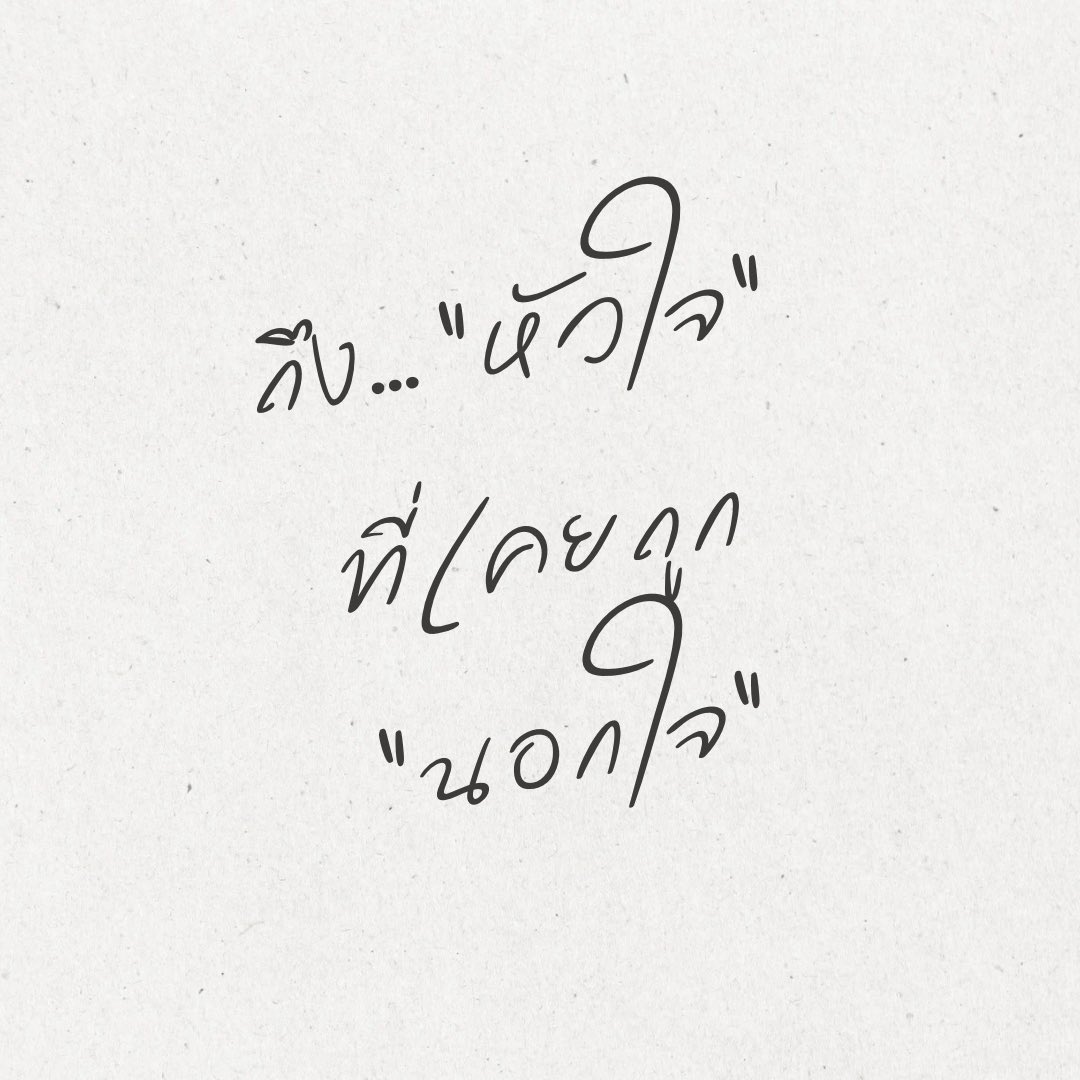 ถึง..."หัวใจ"
ที่เคยถูก
"นอกใจ"